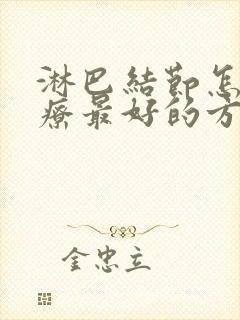 淋巴結節怎
療最好的方
金忠立